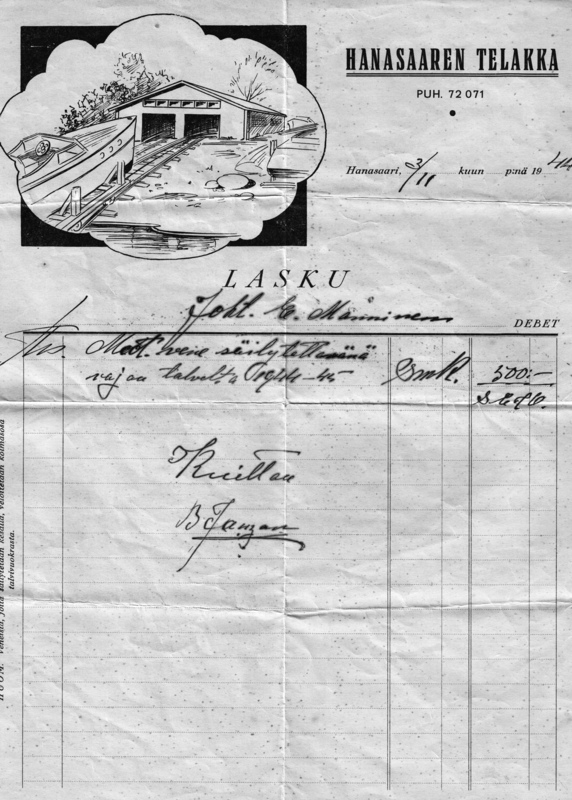 HANASAAREN TELAKKA
PUH. 72 071
Hanasaari, 3/11 kuun p:nä 1944
LASKU
Joht. E. Manninen
DEBET
Mot. vene säilytettävänä
vajan talvelta 1944-45 Smk. 500:-
S E & O.
Kuittaa
B Janzon
HUOM. Veneistä, joita säilytetään kesällä, veloitetaan kuumaosa
talvivuokrasta.